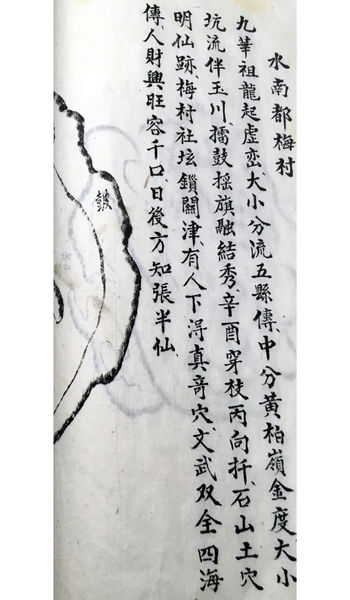 水南都梅村
九華祖龍起虛峦大小分流五縣傳中分黃柏嶺金度大小
坑流伴玉川擂鼓摇旗融結秀辛酉穿杖丙向扦石山土穴
明仙跡梅村社坛鎖關津有人下淂真竒穴文武双全四海
傳人財興旺容千口日後方知張半仙
皷